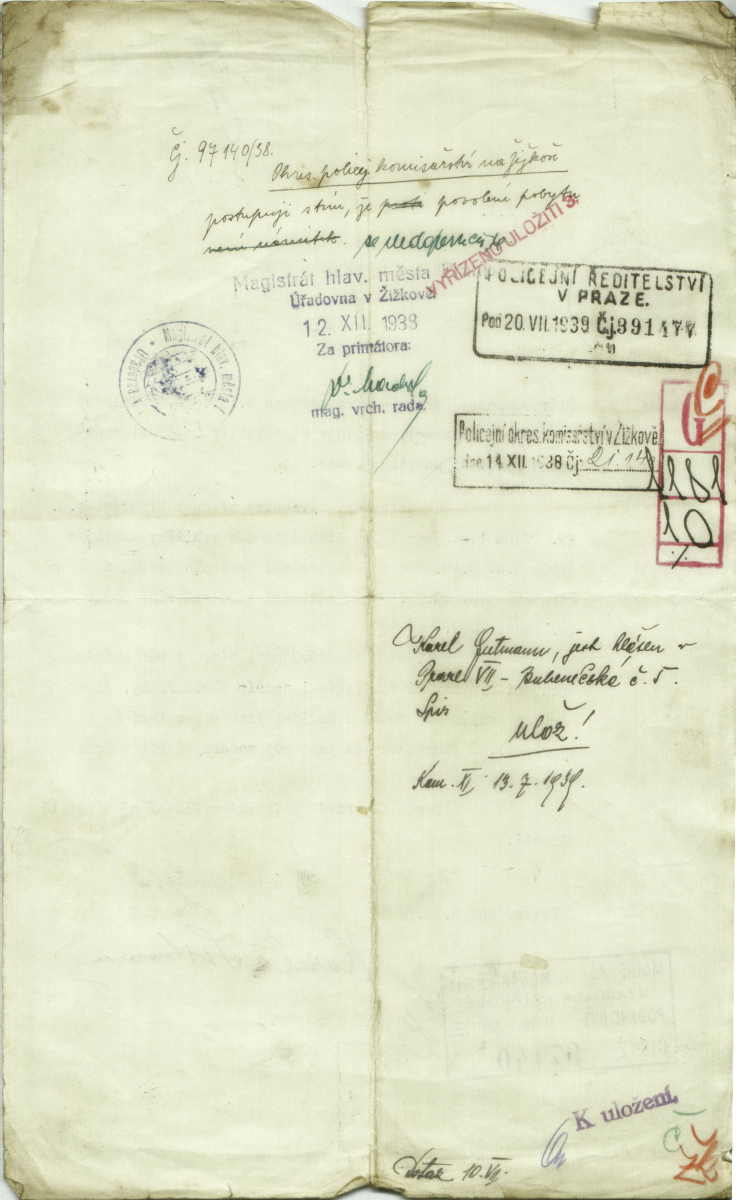 Čj. 97140/38.
Okres. policej. komisařství na Žižkově
postupuji s tím, že proti povolení pobytu
není námitek. se nedoporučuje
VYŘÍZENO ULOŽITI
Magistrát hlav. města
Úřadovna v Žižkově
12. XII. 1938
Za primátora:
mag. vrch. rada.
POLICEJNÍ ŘEDITELSTVÍ
V PRAZE.
20. VII. 1939 Čj. 391477
Policejní okres. komisařství v Žižkově
14 XII. 1938 Čj.
10
Karel Gutmann, jest hlášen v
Praze VII – Bubenečská č. 5.
Spis
ulož!
Kom. XI, 13. 7. 1939.
K uložení.
Dotaz 10. VII.